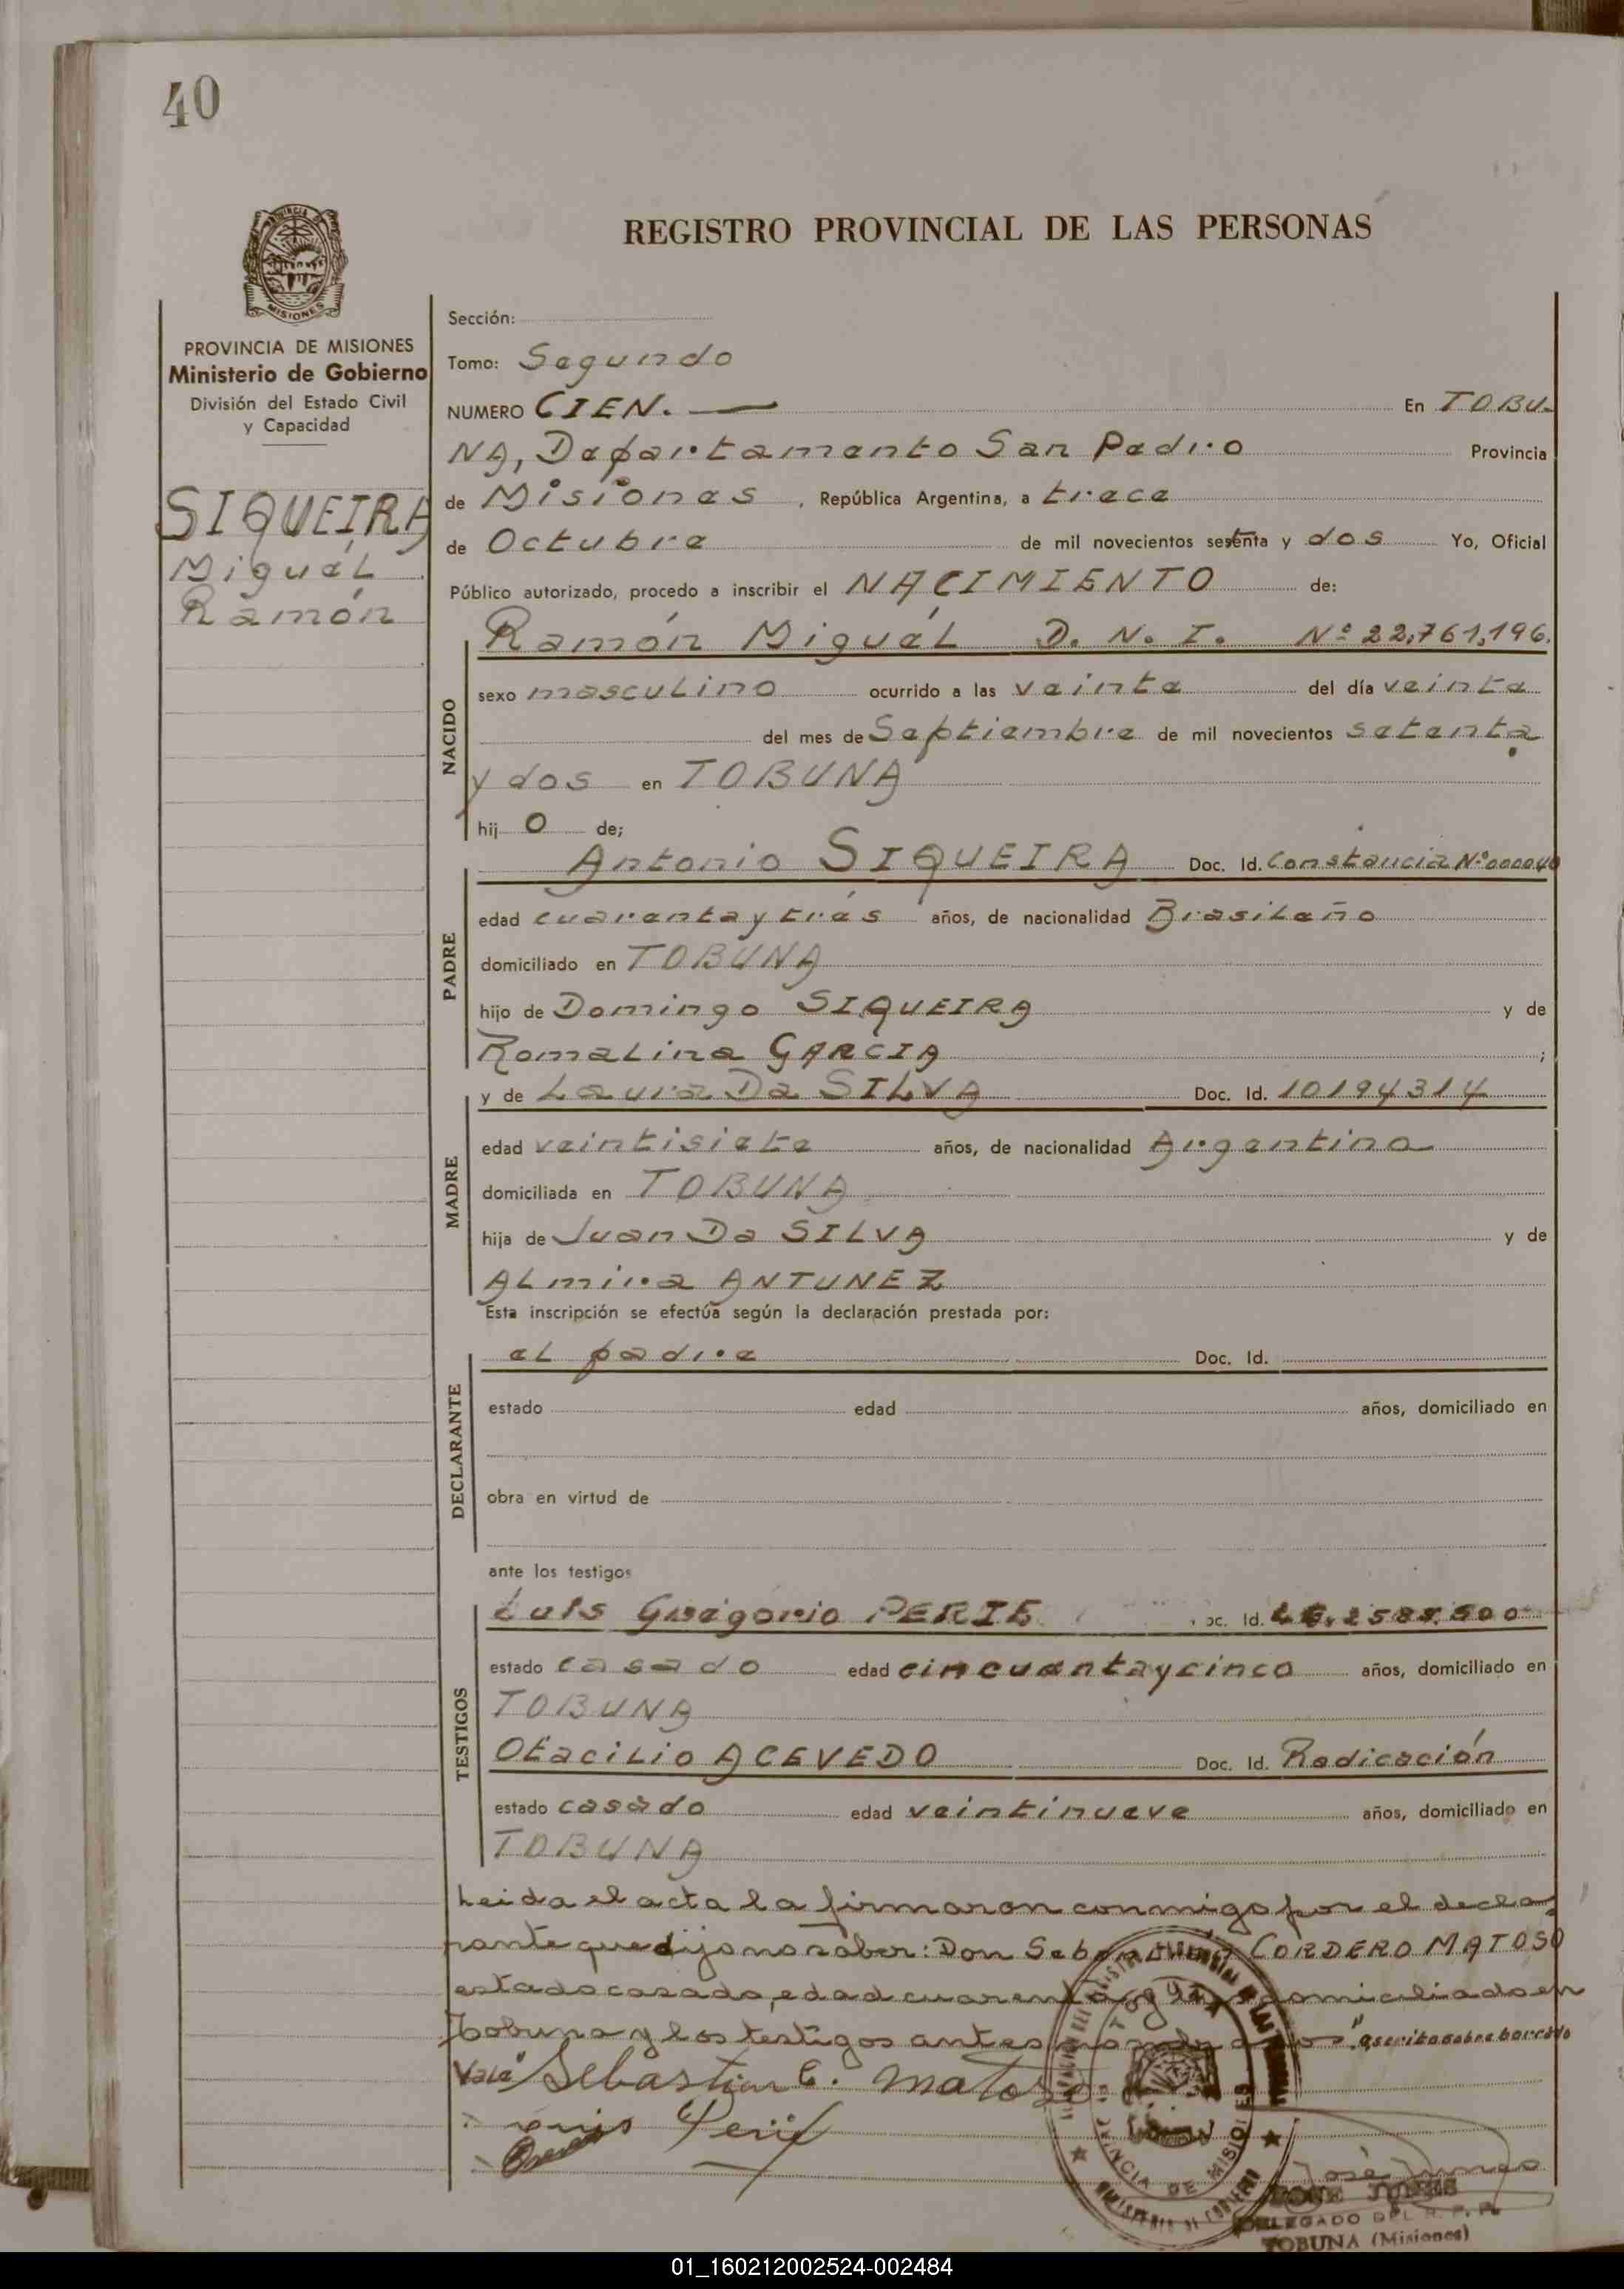 40
REGISTRO PROVINCIAL DE LAS PERSONAS
MISIONES
PROVINCIA DE MISIONES
Ministerio de Gobierno
División del Estado Civil
y Capacidad
SIQUEIRA
Miguél
Ramón
Sección:
Tomo: Segundo
NUMERO CIEN. — En TOBU-
NA, Departamento San Pedro Provincia
de Misiones, República Argentina, a trece
de Octubre de mil novecientos setenta y dos Yo, Oficial
Público autorizado, procedo a inscribir el NACIMIENTO de:
NACIDO
Ramón Miguél D. N. I. Nº 22,761,196.
sexo masculino ocurrido a las veinte del día veinte
del mes de Septiembre de mil novecientos setenta
y dos en TOBUNA
hij o de;
PADRE
Antonio SIQUEIRA Doc. Id. Constancia Nº 000040
edad cuarenta y trés años, de nacionalidad Brasileño
domiciliado en TOBUNA
hijo de Domingo SIQUEIRA y de
Romalina GARCIA ;
MADRE
y de Laura Da SILVA Doc. Id. 10194314
edad veintisiete años, de nacionalidad Argentina
domiciliada en TOBUNA
hija de Juan Da SILVA y de
ALmira ANTUNEZ
Esta inscripción se efectúa según la declaración prestada por:
DECLARANTE
el padre Doc. Id.
estado edad años, domiciliado en
obra en virtud de
ante los testigos
TESTIGOS
Luis Gregorio PERIE oc. Id.
estado casado edad cincuenta y cinco años, domiciliado en
TOBUNA
Otacilio ACEVEDO Doc. Id. Radicación
estado casado edad veintinueve años, domiciliado en
TOBUNA
Leida el acta la firmaron conmigo por el decla-
rante que dijo no saber: Don Sebastian CORDERO MATOSO
estado casado, edad cuarenta y domiciliado en
Tobuna y los testigos antes "escrito sobre borrado
Vale" Sebastian C. Matoso
Luis Perié
José Junes
JOSE JUNES
DELEGADO DEL R. P. P.
TOBUNA (Misiones)
PROVINCIA DE MISIONES
MINISTERIO DE GOBIERNO
01_160212002524-002484